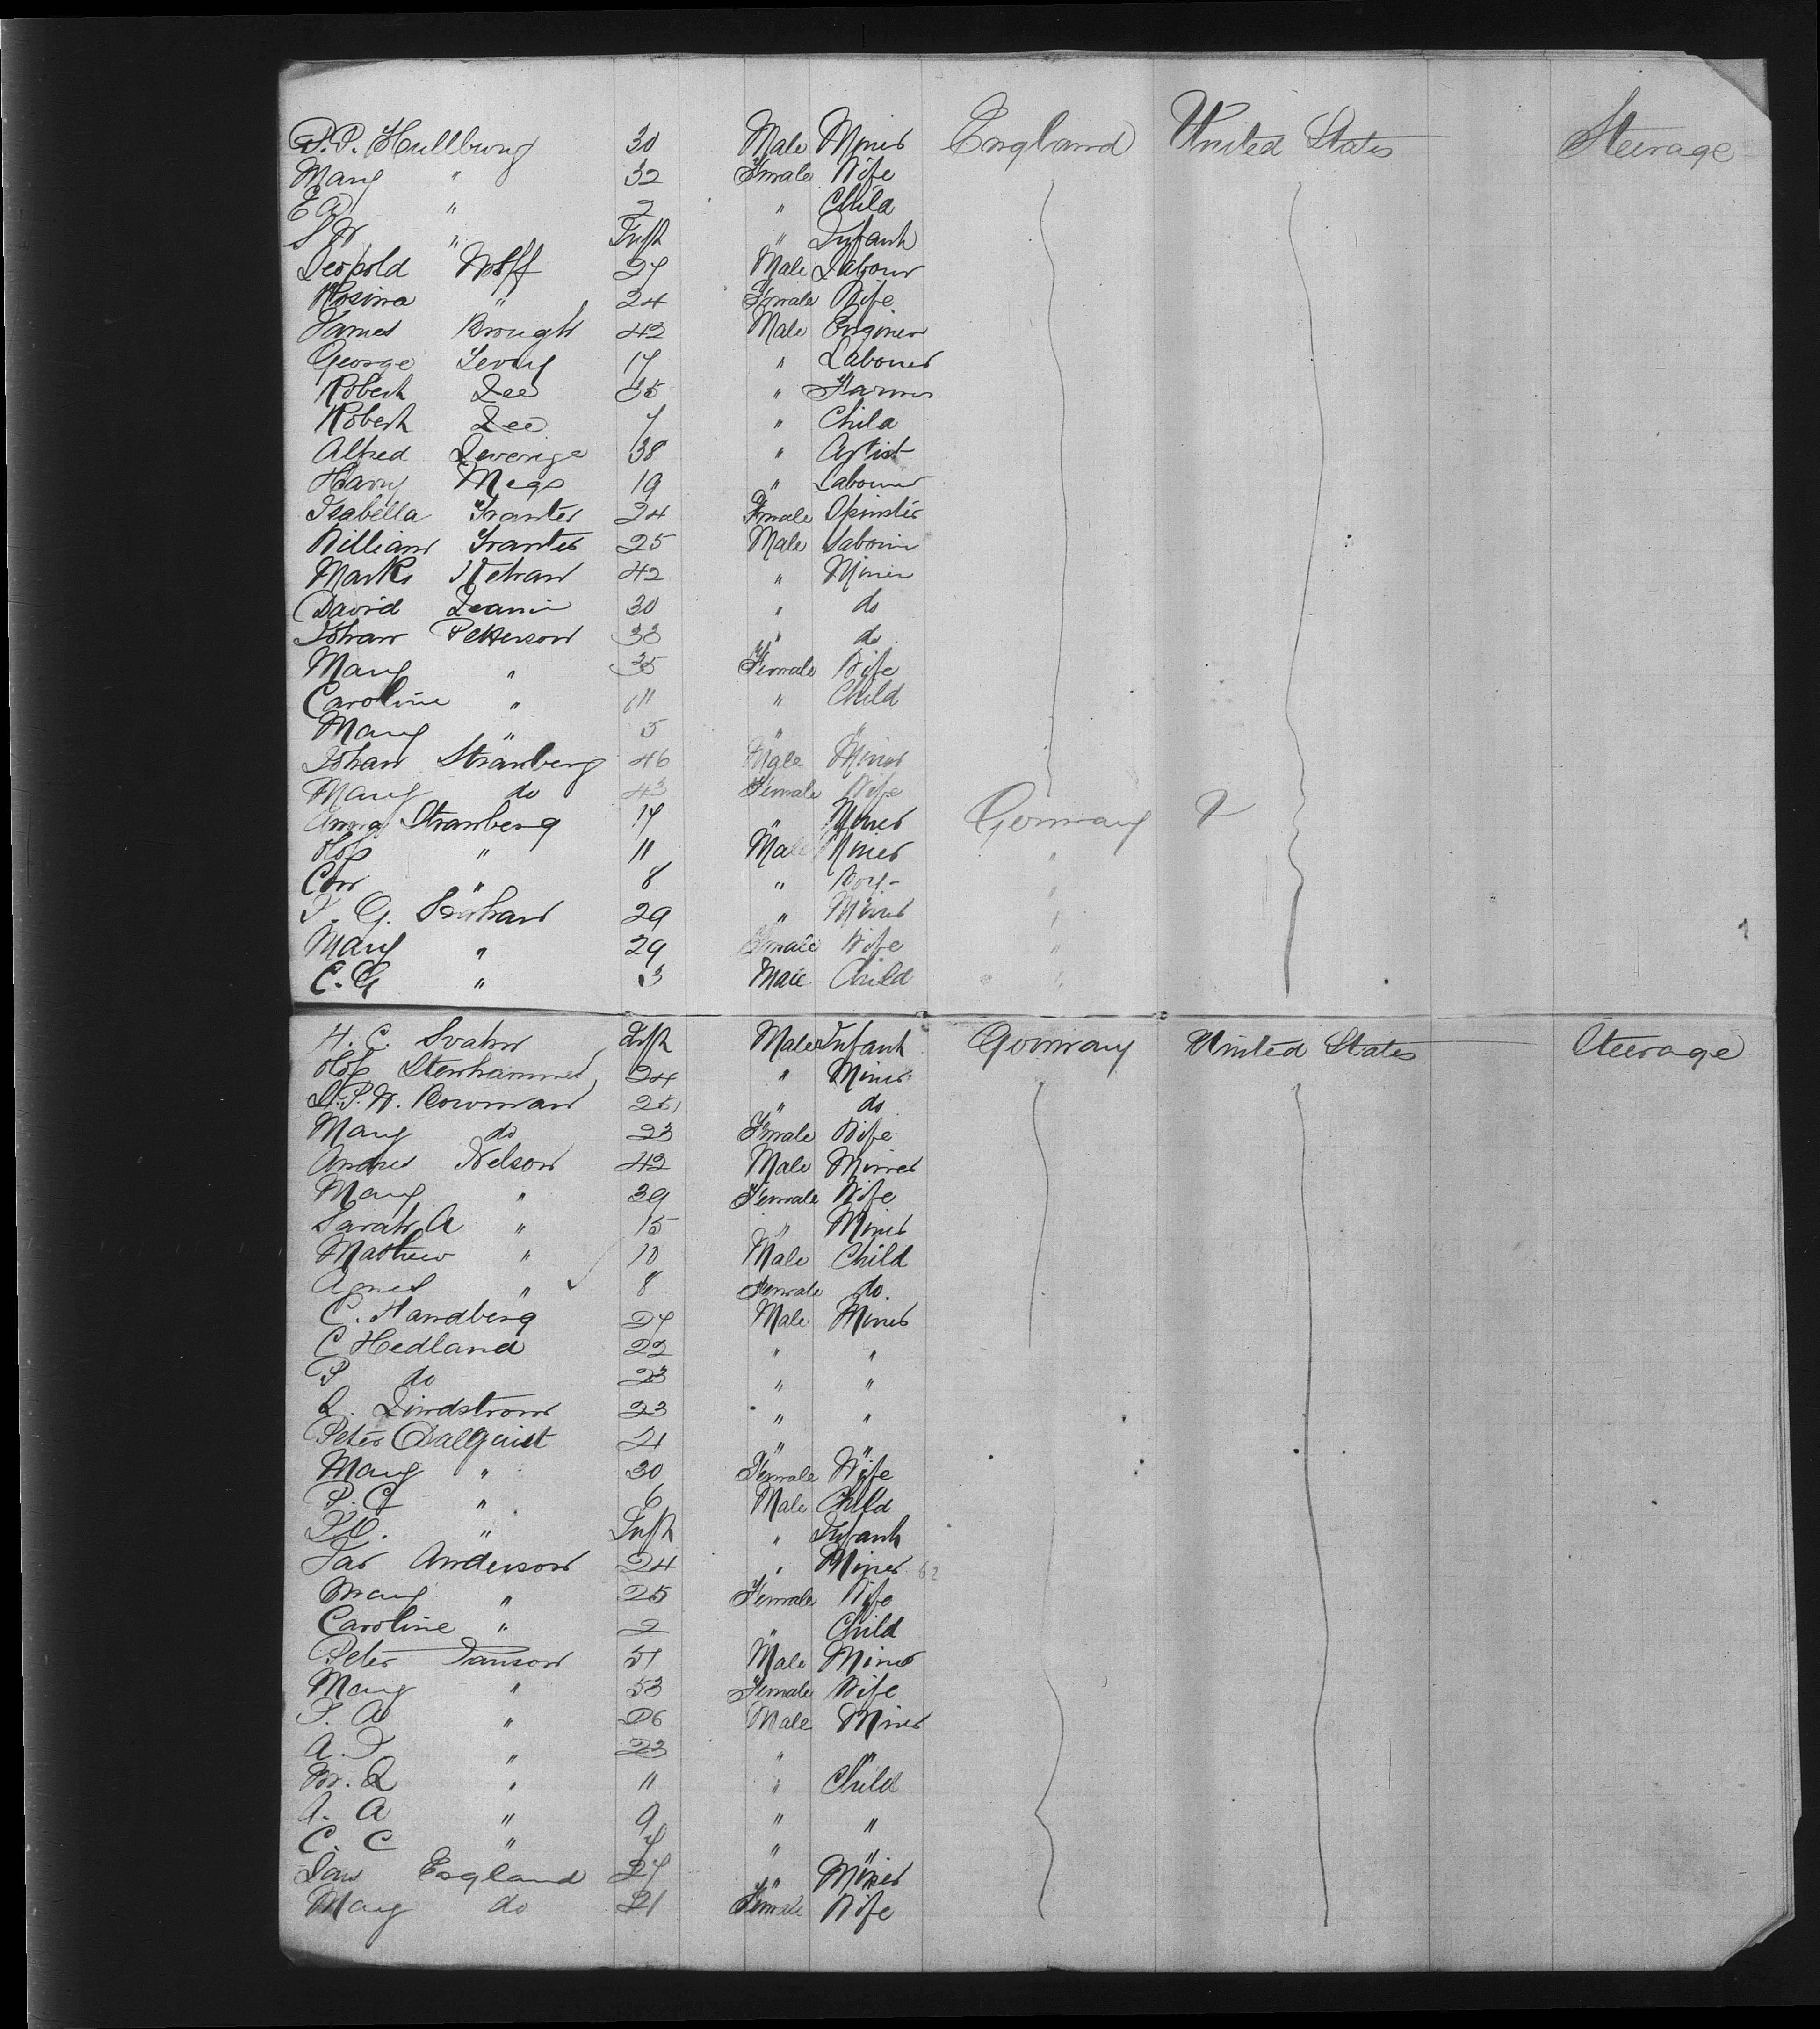 P.P. Hullburg 30 Male Miner England United States Steerage
Mary " 32 Female Wife
E A " 2 " Child
S W " Inft " Infant
Leopold Wolff 27 Male Labour
Rosina " 24 Female Wife
James Brough 42 Male Enginer
George 17 " Labourer
Robert Lee 35 " Farmer
Robert Lee 7 " Child
Alfred 38 " Artist
Harry 19 " Labourer
Isabella Tranter 24 Female Spinster
William Tranter 25 Male Labour
Marks 42 " Miner
David 30 " do
Johan Petterson 33 " do
Mary " 35 Female Wife
Caroline " 11 " Child
Mary " 5 " "
Johan Stranberg 46 Male Miner
Mary do 43 Female Wife
Anna Stranberg 17 " Miner Germany
Olof " 11 Male Miner "
" 8 " Boy "
G. 29 " Miner "
Mary " 29 Female Wife "
C. G " 3 Male Child "
H. C. Svahn Inft Male Infant Germany United States Steerage
Olof Stenhammer 24 " Miner
P. W. Bowman 25 " do
Mary do 23 Female Wife
Andrew Nelson 42 Male Miner
Mary " 39 Female Wife
Sarah A " 15 " Miner
Mathew " 10 Male Child
Agnes " 8 Female do.
C. Handberg 27 Male Miner
C Hedland 22 " "
P do 23 " "
L. Lindstrom 23 " "
Peter Dalquist 21 " "
Mary " 30 Female Wife
P. C " 6 Male Child
" Inft " Infant
Jas Anderson 24 " Miner
Mary " 25 Female Wife
Caroline " 2 " Child
Peter Janson 51 Male Miner
Mary " 53 Female Wife
P. A " 26 Male Miner
A. " 23 " "
" 11 " Child
A. A " 9 " "
C. C " 7 " "
England 27 " Miner
Mary do 21 Female Wife